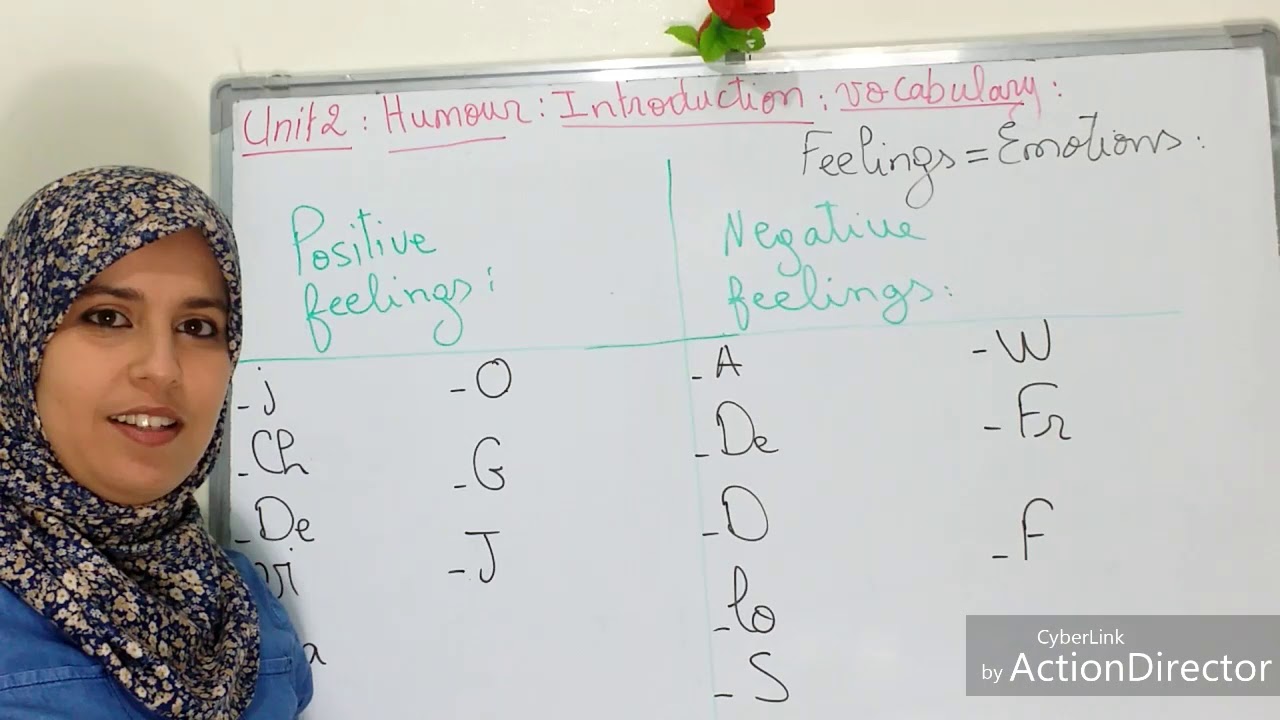 Unit2 : Humour : Introduction : vocabulary :
Feelings = Emotions :
Positive
feelings :
- j
- Ch
- De
vi
a
- O
- G
- J
Negative
feelings :
- A
- De
- D
- lo
- S
- W
- Fr
- F
CyberLink
by ActionDirector